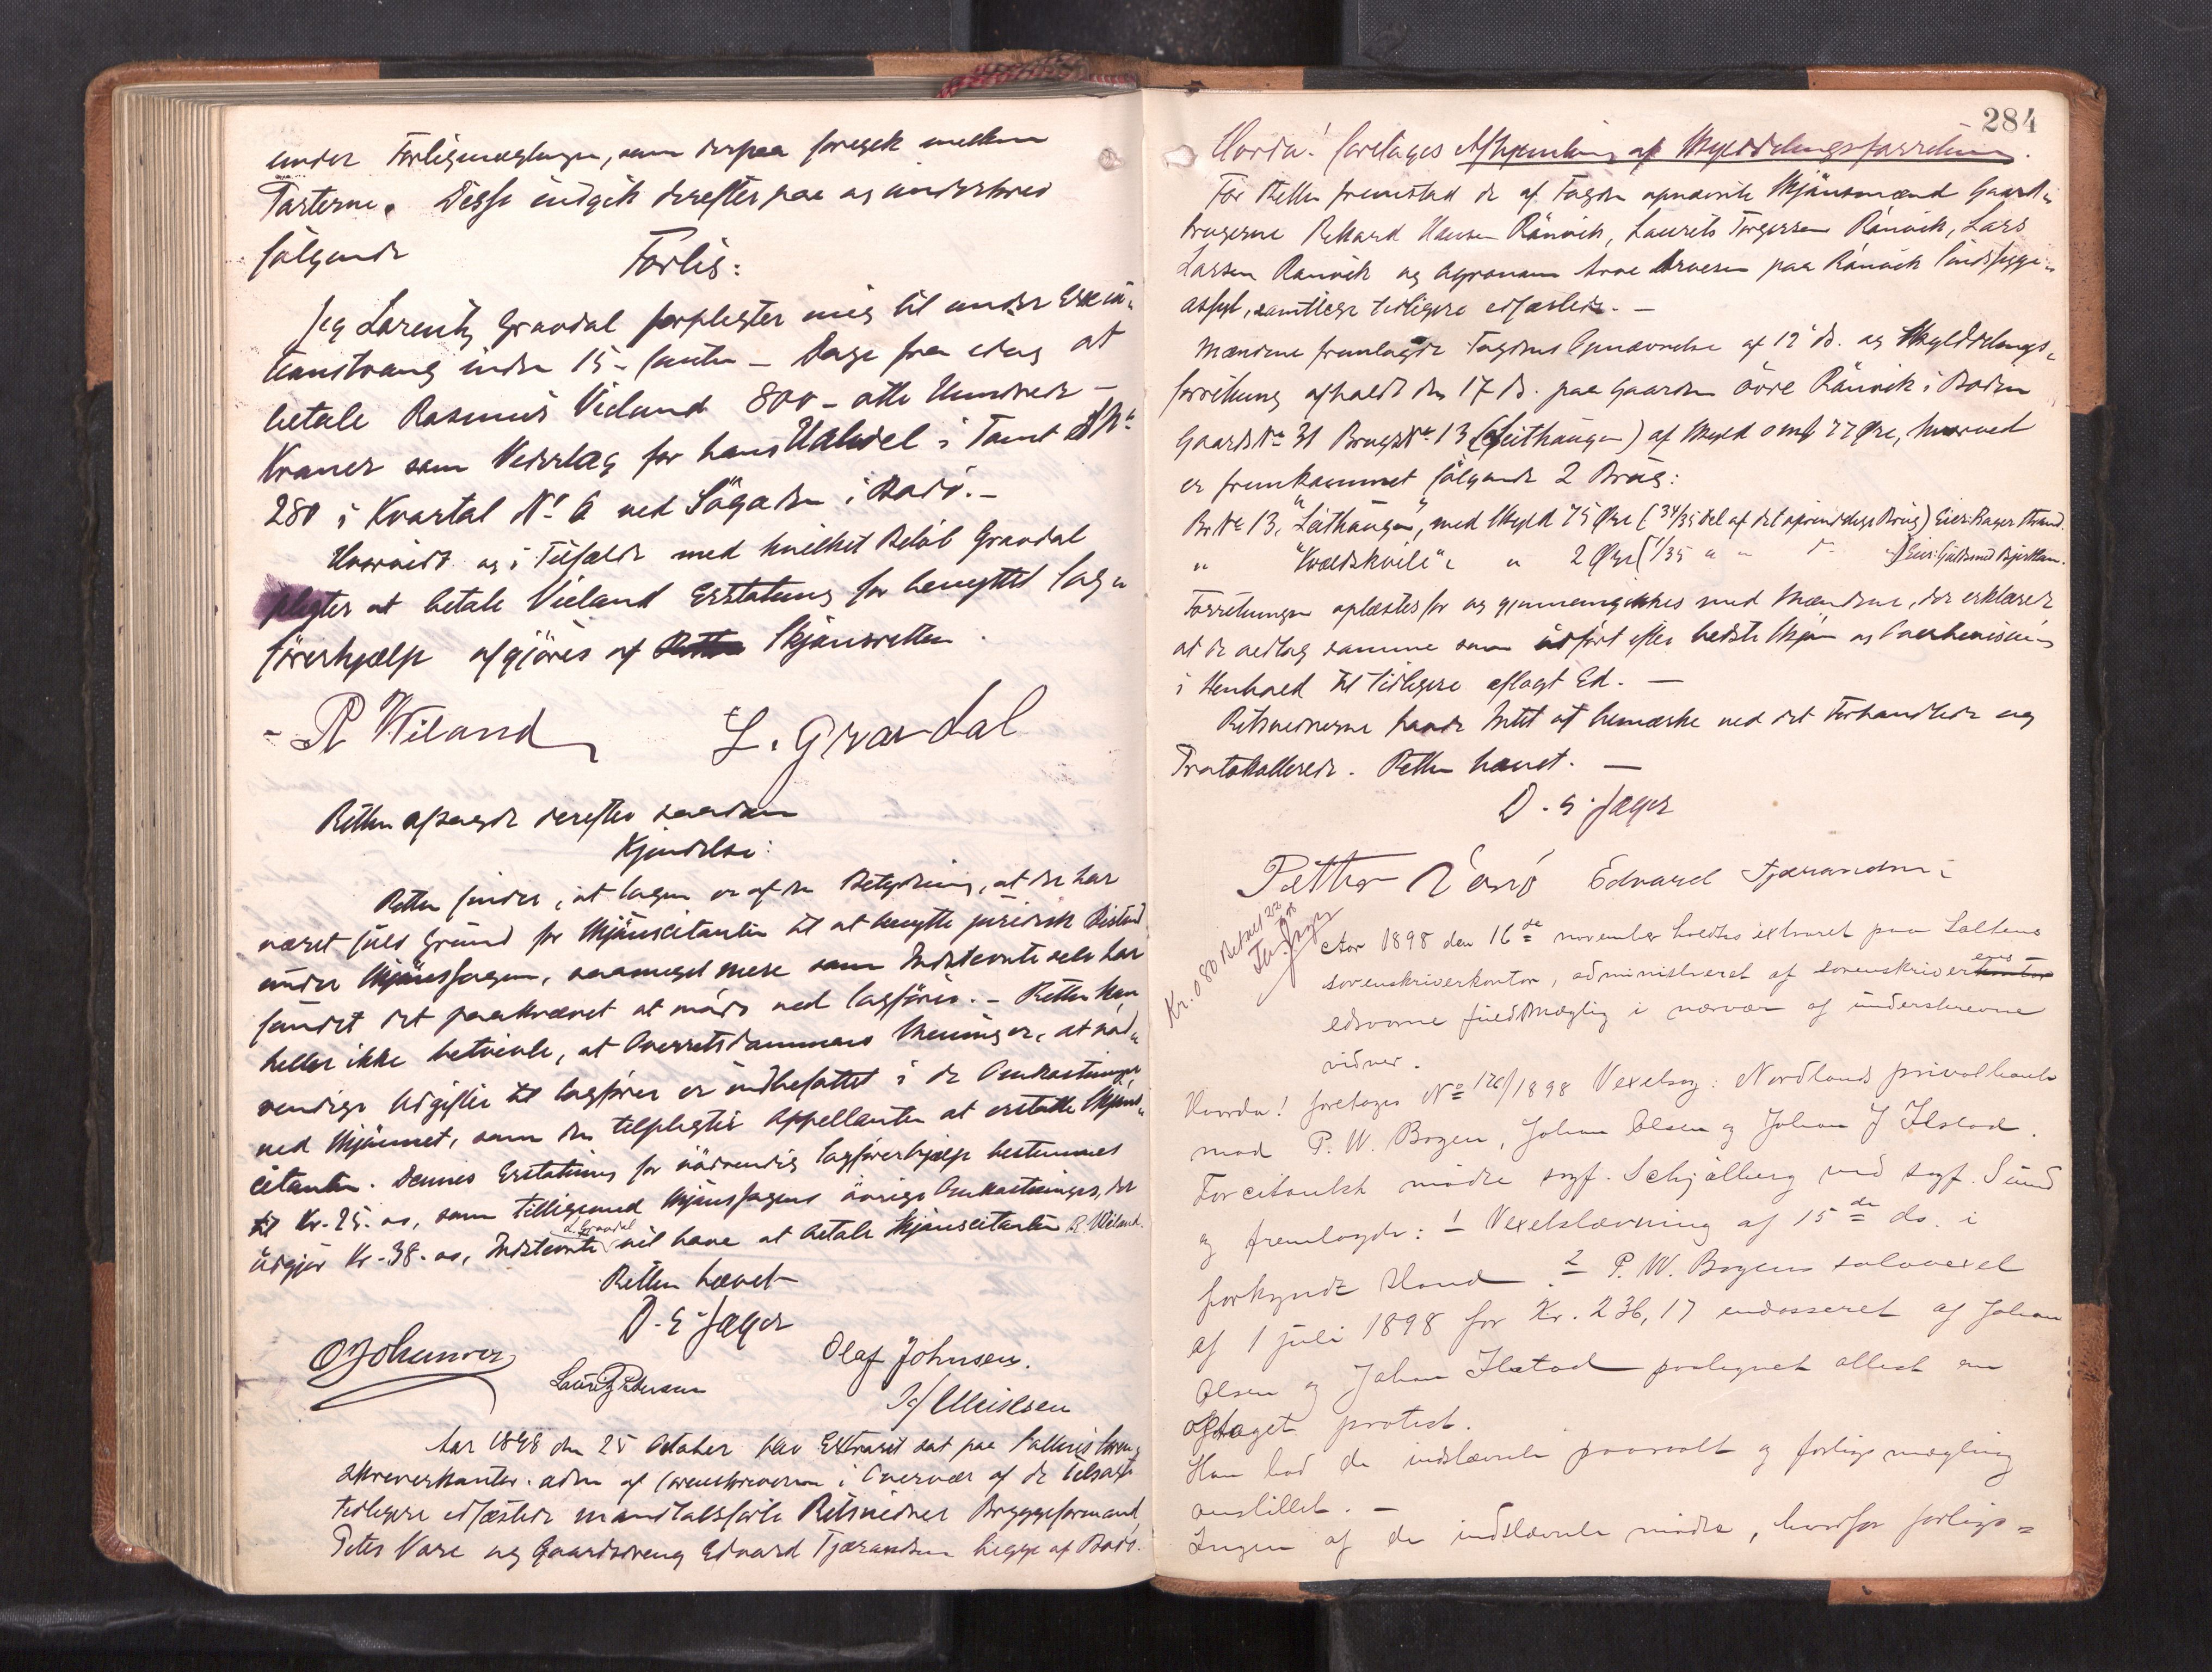 under Forligsmæglingen, som derpaa foregik mellem
Parterne. Disse indgik derefter paa og underskrev
følgende Forlig:
Jeg Lorentz Gravdal forpligter mig til under Exeku„
tionstvang inden 15 - femten - Dage fra idag at
betale Rasmus Vieland 800 - otte Hundrede -
Kroner som Vederlag for hans Halvdel i Tomt No
280 i Kvartal No 6 ved Søgaden i Bodø. -
Hvorvidt og i Tilfælde med hvilket Beløb Gravdal
pligter at betale Vieland Erstatning for benyttet Sag„
førerhjælp afgjøres af Skjønsretten.
- R Wiland L. Gravdal
Retten afsagde derefter saadan
Kjendelse:
Retten finder, at Sagen er af den Betydning, at der har
været fuld Grund for Skjønscitanten til at benytte juridisk Bistand
under Skjønssagen, saameget mere som Indstevnte selv har
fundet det paakrævet at møde ved Sagfører. - Retten kan
heller ikke betvivle, at Overretsdommens Mening er, at nød„
vendige Udgifter til Sagfører er indbefattet i de Omkostninger
ved Skjønnet, som den tilpligter Appellanten at erstatte Skjøns„
citanten. Dennes Erstatning for nødvendig Sagførerhjælp bestemmes
til Kr. 25.00, som tilligemed Skjønssagens øvrige Omkostninger, der
L. Gravdal
udgjør Kr. 38.00, Indstevnte vil have at betale Skjønscitanten R. Wiland.
Retten hævet
D. E. Jæger
O Johannesen Olaf Johnsen.
Lauritz Pedersen
Aar 1898 den 25 Oktober blev Extraret sat paa Saltens Soren„
skriverkontor. adm af Sorenskriveren i Overvær af de tilsagte
tidligere edfæstede mandtalsførte Retsvidner Bryggeformand
Peter Vare og Gaardsdreng Edvard Tjærandsen begge af Bodø.
284
Hvorda! foretages Afhjemling af Skylddelingsforretning.
For Retten fremstod de af Fogden opnævnte Skjønsmænd Gaard„
brugerne Rikard Hansen Rønvik, Laurits Torgersen Rønvik, Lars
Larsen Rønvik og Agronom Arne Arnesen paa Rønvik Sindssyge„
asyl, samtlige tidligere edfæstede. -
Mændene fremlagde Fogdens Opnævnelse af 12 ds. og Skylddelings„
forretning afholdt den 17 ds. paa Gaarden øvre Rønvik i Bodin
Gaards No 31 Brugs No 13 (Leithaugen) af Skyld 0 mk 77 Øre, hvorved
er fremkommet følgende 2 Brug:
Br No 13, "Leithaugen", med Skyld 75 Øre (34/35 Del af det oprindelige Brug) Eier: Bager Strand.
" "Kvældskvile" " 2 Øre (1/35 " " d- ") Eier: Guldsmed Bjerkan.
Forretningen oplæstes for og gjennemgikkes med Mændene, der erklærede
at de vedtog samme som udført efter bedste Skjøn og Overbevisning
i Henhold til tidligere aflagt Ed. -
Retsvidnerne havde Intet at bemærke ved det Forhandlede og
Protokollerede. Retten hævet. -
D. E. Jæger
Petter Varø Edvard Tjærandsen
Kr. 0 80 Betalt 22
Aar 1898 den 16de november holdtes extraret paa Saltens
sorenskriverkontor, administreret af sorenskriverens
edsvorne fuldmægtig i nærvær af underskrevne
vidner.
Hvorda! foretages No 126/1898 Vexelsag: Nordlands privatbank
mod P. W. Bogen, Johan Olsen og Johan J Ilstad.
For citantsk mødte sagf. Schjølberg ved sagf. Sund
og fremlagde: 1 Vexelstævning af 15de ds. i
forkyndt stand. 2 P. W. Bogens solavexel
af 1 juli 1898 for Kr. 236,17 endosseret af Johan
Olsen og Johan Ilstad paategnet attest om
optaget protest.
Han lod de indstævnte paaraabt og forligsmægling
anstillet. -
Ingen af de indstævnte mødte, hvorfor forligs=